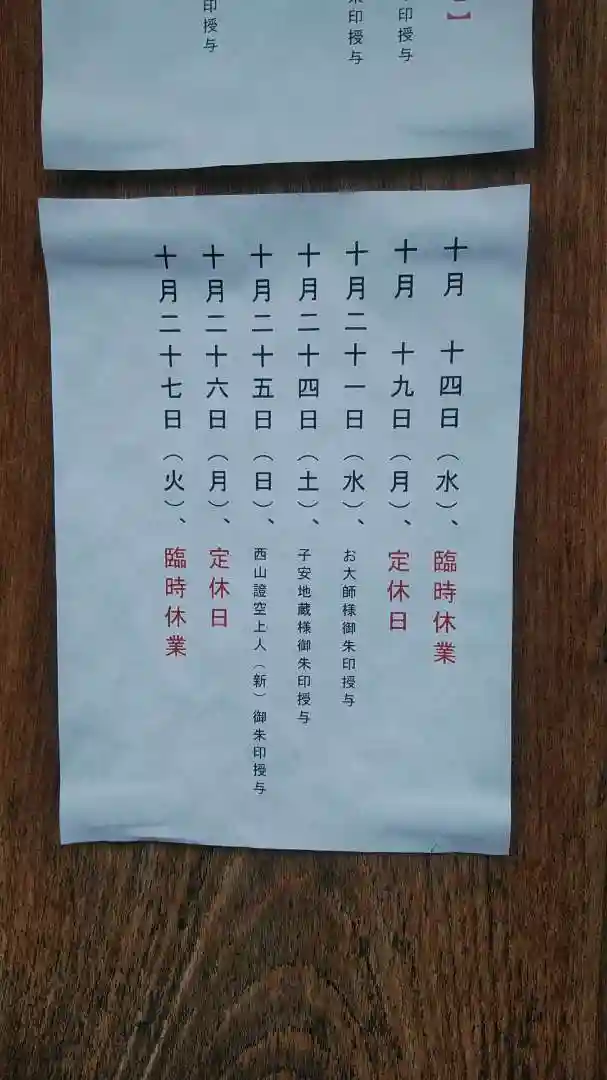 】
印授与
朱印授与
印授与
十月　十四日（水）、臨時休業
十月　十九日（月）、定休日
十月二十一日（水）、お大師様御朱印授与
十月二十四日（土）、子安地蔵様御朱印授与
十月二十五日（日）、西山證空上人（新）御朱印授与
十月二十六日（月）、定休日
十月二十七日（火）、臨時休業